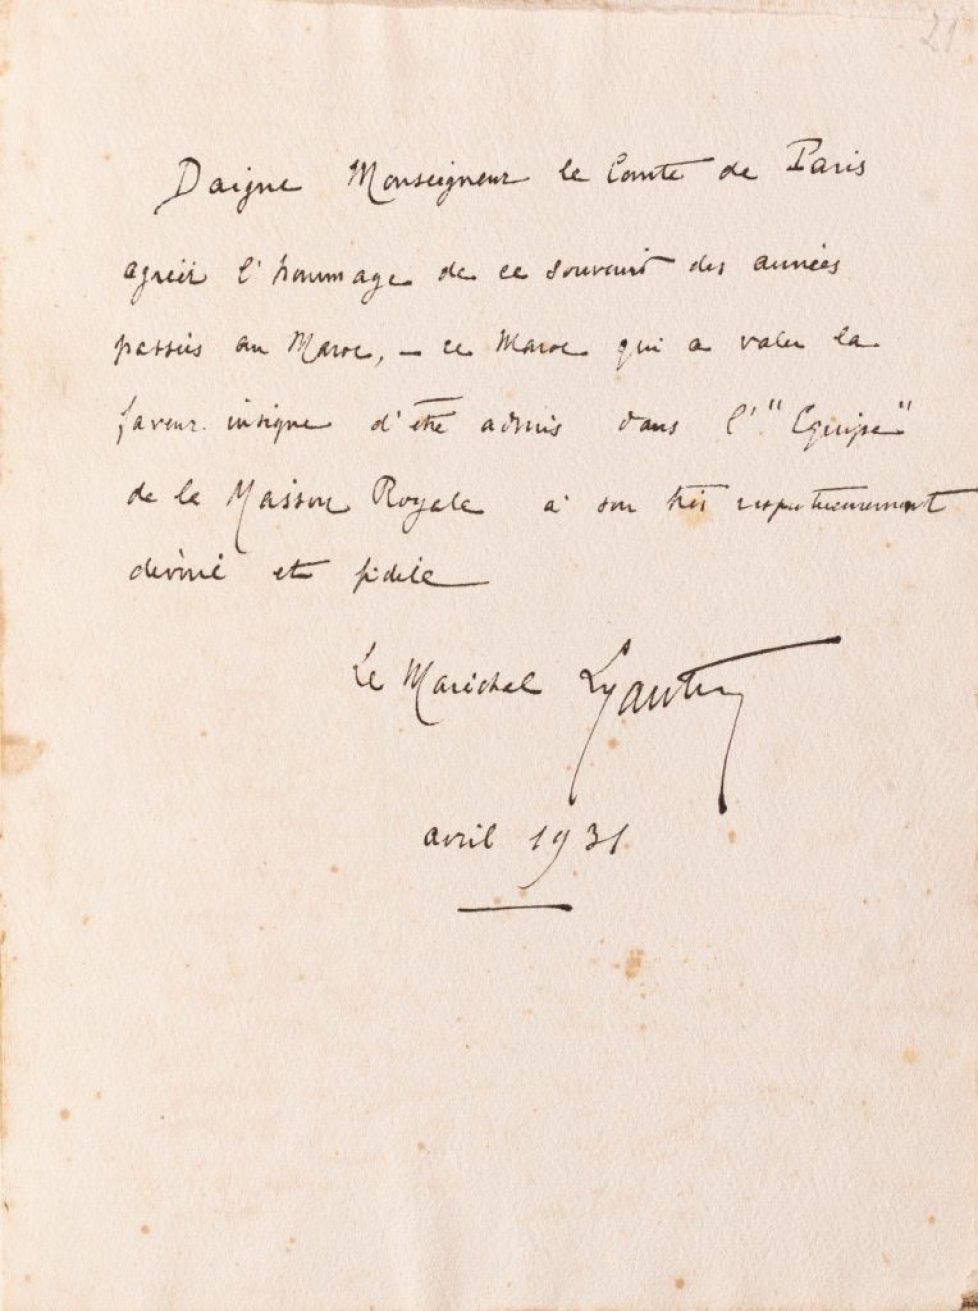 21
Daigne Monseigneur le Comte de Paris
agréer l'hommage de ce souvenir des années
passées au Maroc, — ce Maroc qui a valu la
faveur insigne d'être admis dans l'"Equipe"
de la Maison Royale à son très respectueusement
dévoué et fidèle
Le Maréchal Lyautey
avril 1931